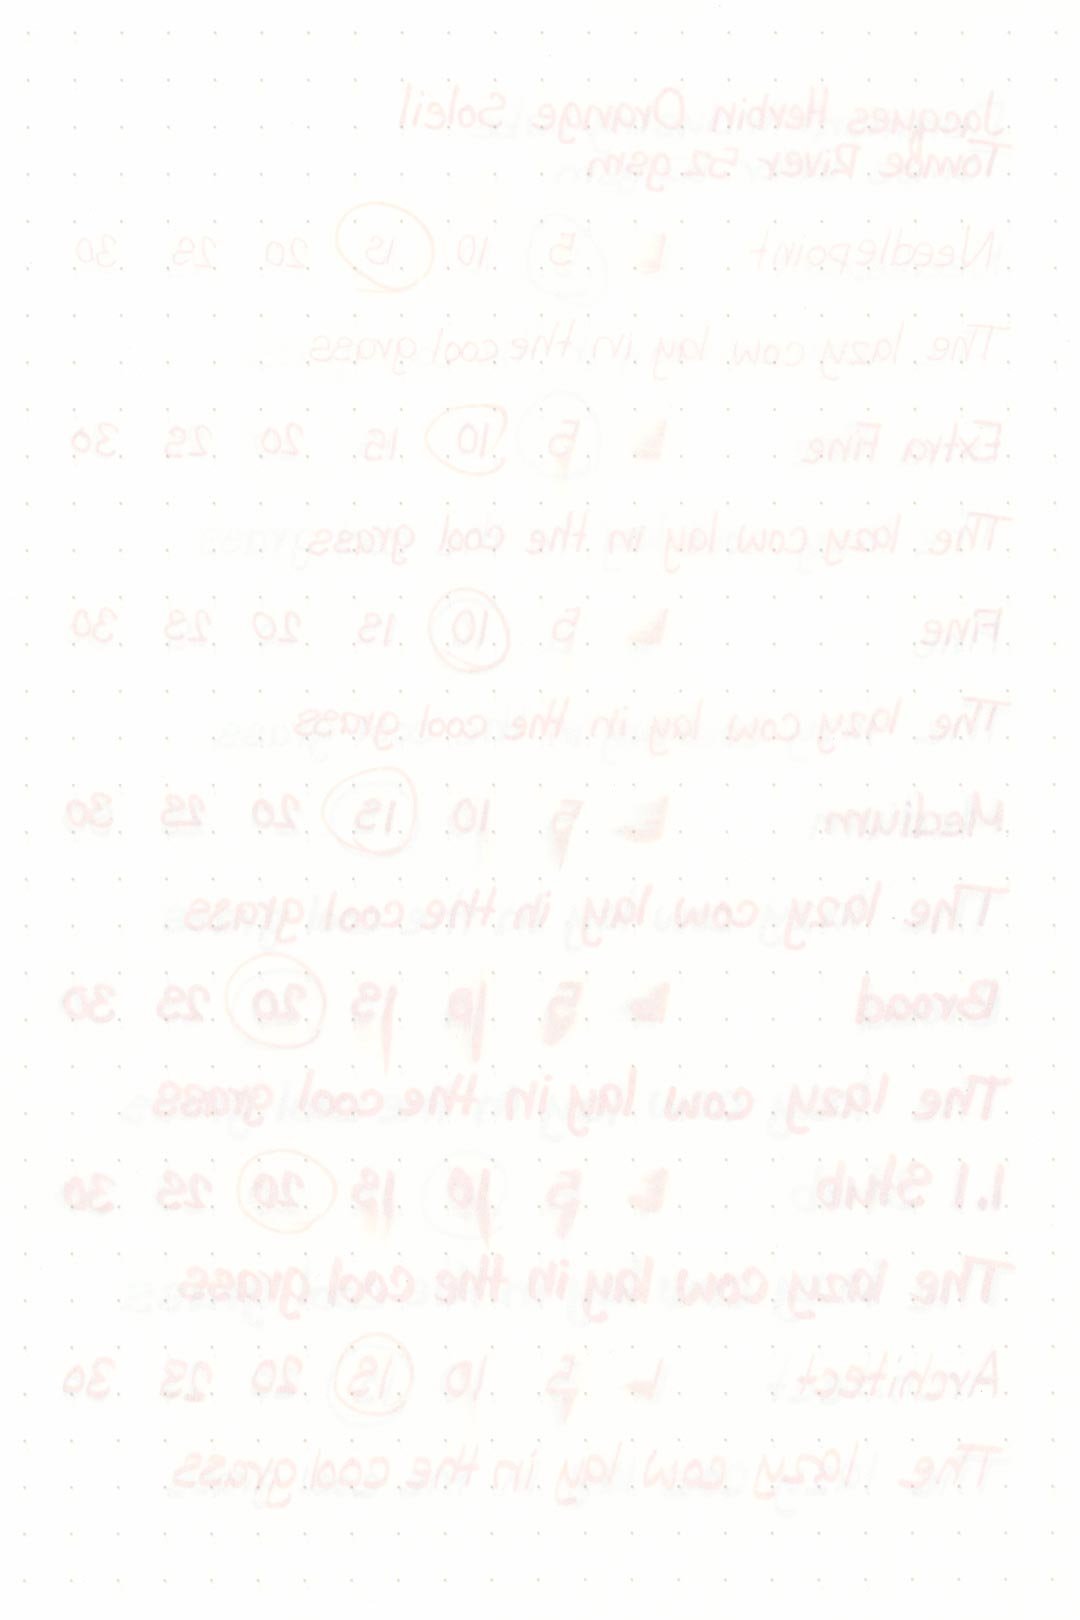 Jacques Herbin Orange Soleil
Tomoe River 52 gsm
Needlepoint L 5 10 15 20 25 30
The lazy cow lay in the cool grass
Extra Fine L 5 10 15 20 25 30
The lazy cow lay in the cool grass
Fine L 5 10 15 20 25 30
The lazy cow lay in the cool grass
Medium L 5 10 15 20 25 30
The lazy cow lay in the cool grass
Broad L 5 10 15 20 25 30
The lazy cow lay in the cool grass
1.1 Stub L 5 10 15 20 25 30
The lazy cow lay in the cool grass
Architect L 5 10 15 20 25 30
The lazy cow lay in the cool grass